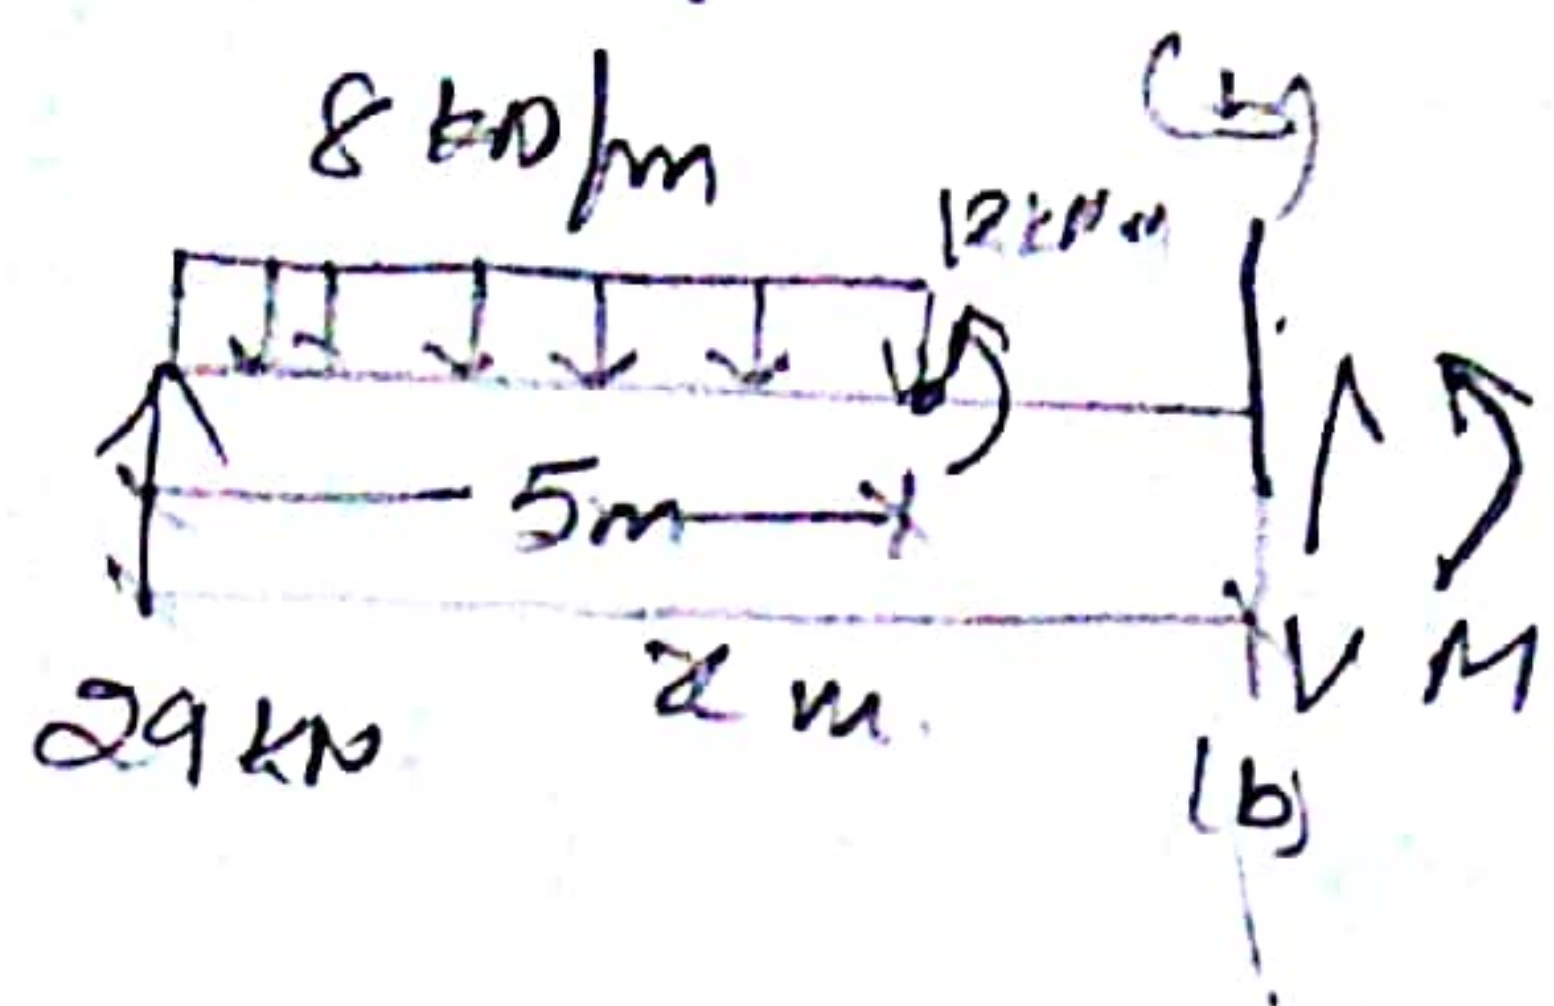 8 kN/m
(b)
12 kNm
5m
x m.
29 kN
V M
(b)